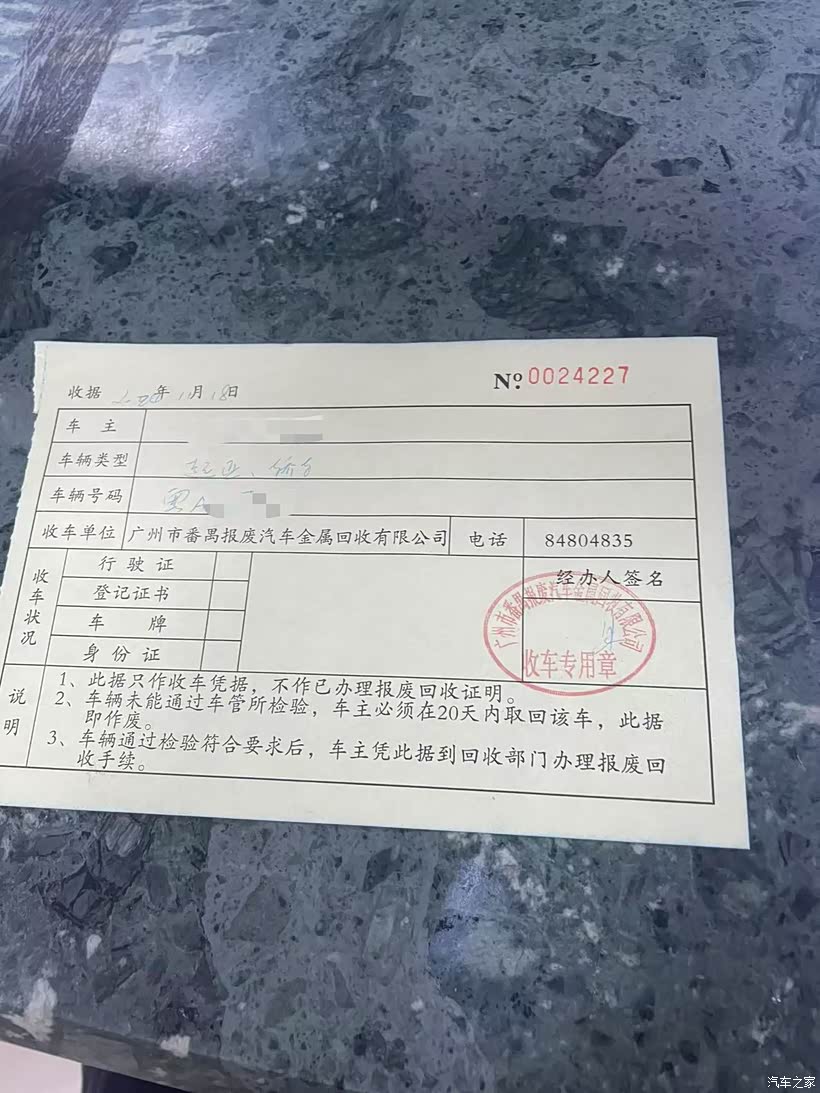 收据 年1月18日 № 0024227
车主
车辆类型 起亚、
车辆号码 粤A
收车单位 广州市番禺报废汽车金属回收有限公司 电话 84804835
收车状况
行驶证 经办人签名
登记证书
车牌
身份证
广州市番禺报废汽车金属回收有限公司
收车专用章
说明
1、此据只作收车凭据，不作已办理报废回收证明。
2、车辆未能通过车管所检验，车主必须在20天内取回该车，此据
即作废。
3、车辆通过检验符合要求后，车主凭此据到回收部门办理报废回
收手续。
汽车之家